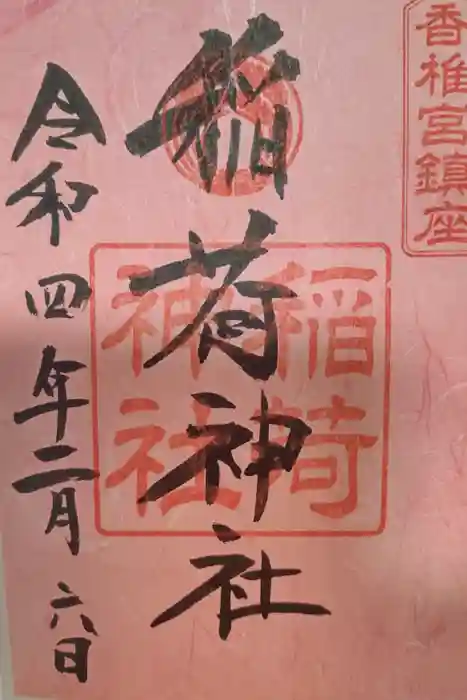 香椎宮鎮座
稲荷神社
稲荷
神社
令和四年二月六日